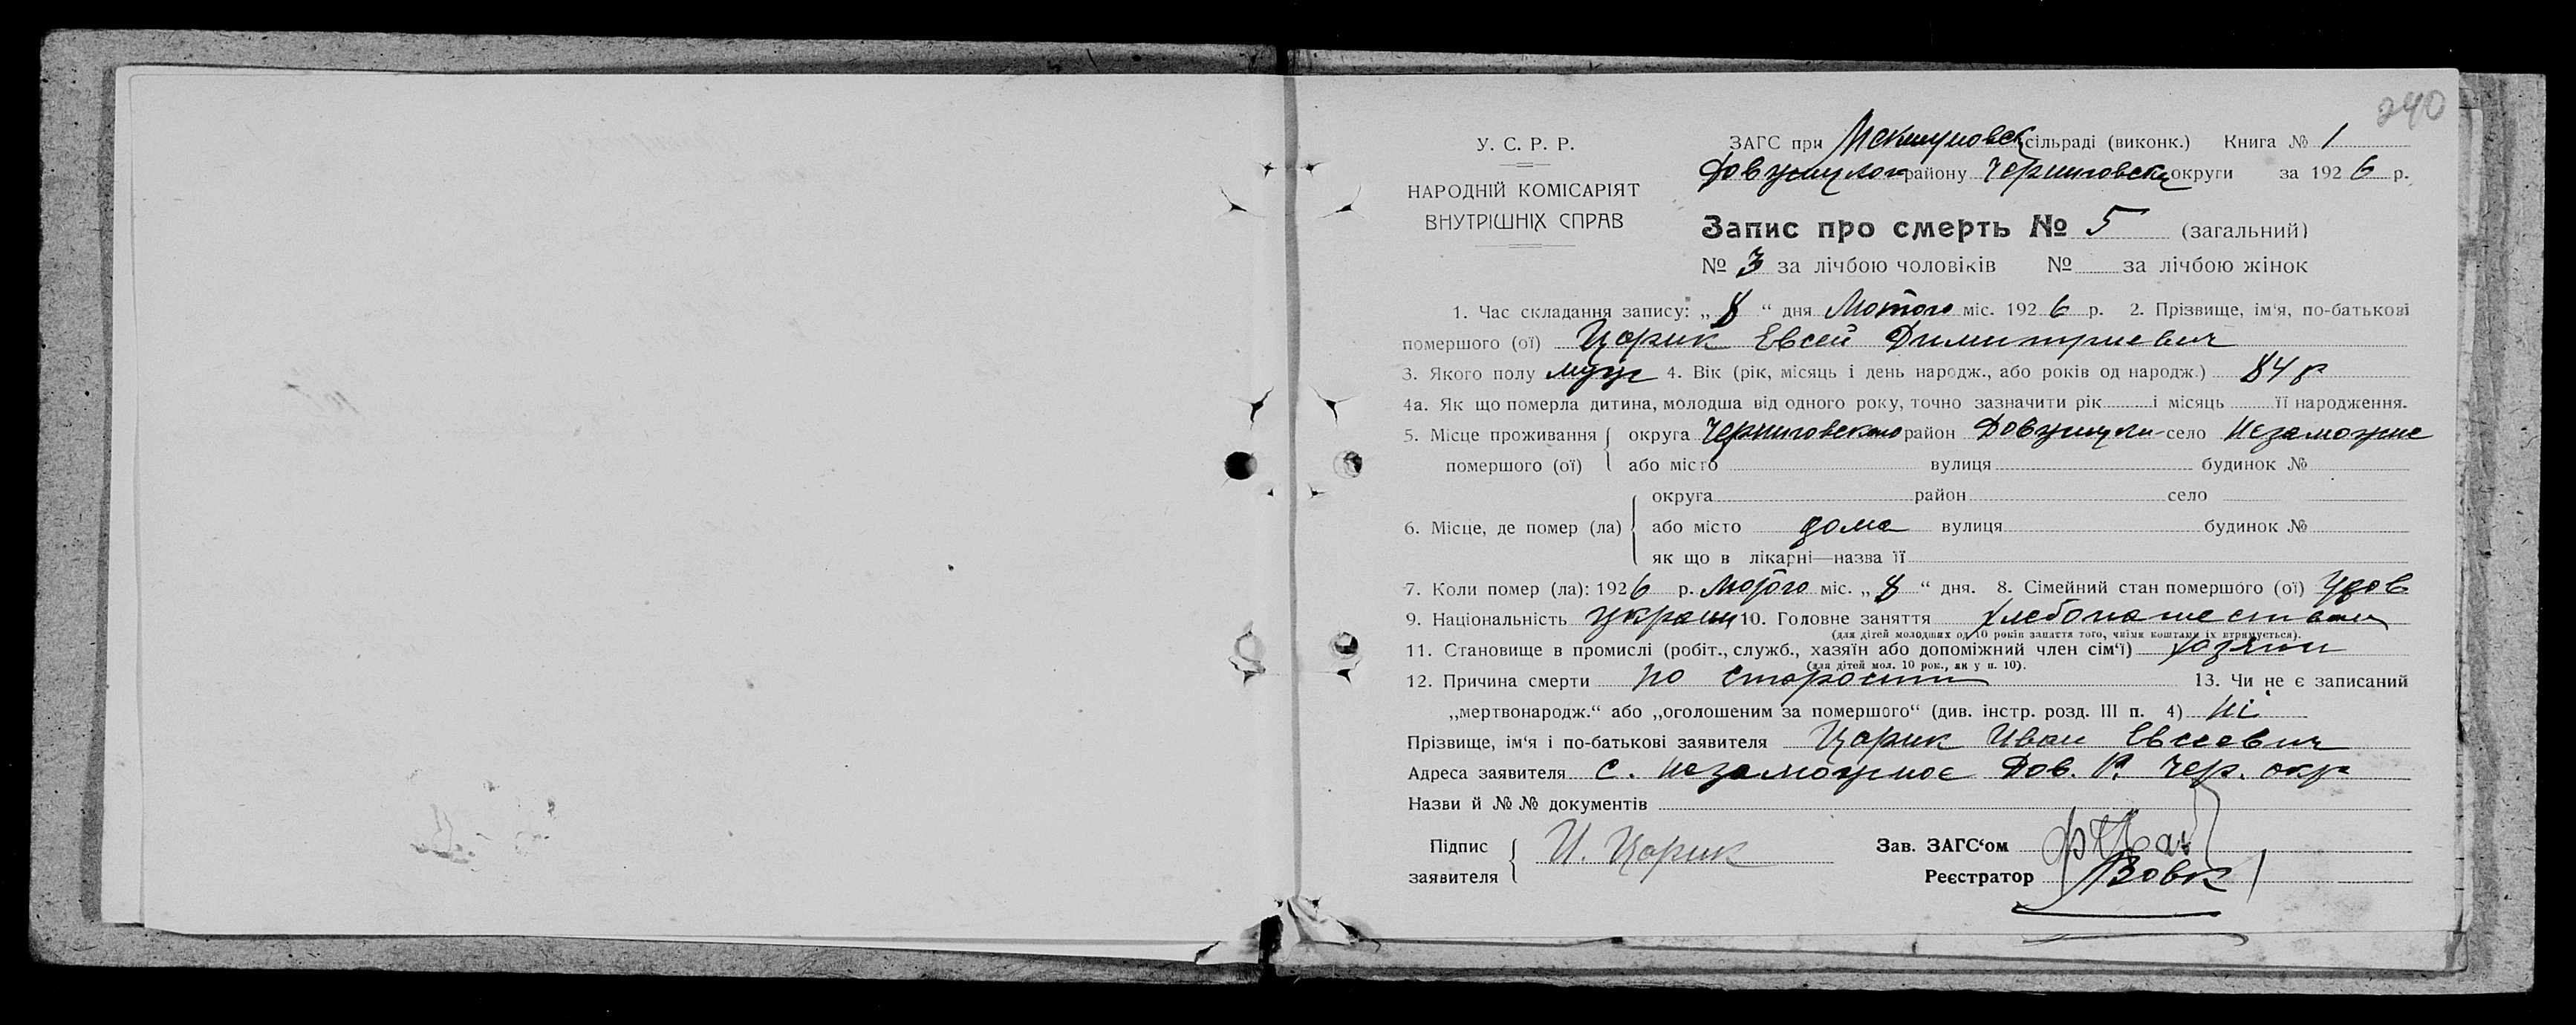 240
У. С. Р. Р.
НАРОДНІЙ КОМІСАРІЯТ
ВНУТРІШНІХ СПРАВ
ЗАГС при сільраді (виконк.) Книга № 1
району Черниговск округи за 1926 р.
Запис про смерть № 5 (загальний)
№ 3 за лічбою чоловіків № за лічбою жінок
1. Час складання запису: „ 8 “ дня Лютого міс. 1926 р. 2. Прізвище, ім‘я, по-батькові
помершого (ої) Царик Евсей Димитриевич
3. Якого полу муж 4. Вік (рік, місяць і день народж., або років од народж.) 84 р
4а. Як що померла дитина, молодша від одного року, точно зазначити рік і місяць її народження.
5. Місце проживання помершого (ої) { округа Черниговскаго район село Незаможне
або місто вулиця будинок №
6. Місце, де помер (ла) { округа район село
або місто дома вулиця будинок №
як що в лікарні—назва її
7. Коли помер (ла): 1926 р. Лютого міс. „ 8 “ дня. 8. Сімейний стан помершого (ої) Удов
9. Національність украин 10. Головне заняття хлебопашеством
(для дітей молодших од 10 років заняття того, чиїми коштами їх втримується).
11. Становище в промислі (робіт., служб., хазяїн або допоміжний член сім‘ї) хозяин
(для дітей мол. 10 рок., як у п. 10).
12. Причина смерти по старости 13. Чи не є записаний
„мертвонародж.“ або „оголошеним за помершого“ (див. інстр. розд. III п. 4) ні
Прізвище, ім‘я і по-батькові заявителя Царик Иван Евсеевич
Адреса заявителя с. Незаможноє Дов. р. Чер. окр
Назви й № № документів
Підпис заявителя { И. Царик
Зав. ЗАГС‘ом
Реєстратор Вовк